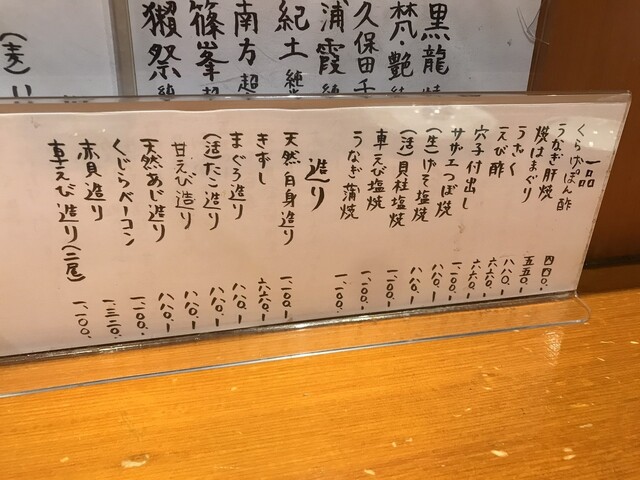 黒龍
梵・艶 純
久保田 千
浦霞 純
紀土 純
南方 超
篠峯 超
獺祭 純
(麦)
一品
くらげぽん酢 四四〇ー
うなぎ肝焼 五五〇ー
焼はまぐり 八八〇ー
うざく 六六〇ー
えび酢 六六〇ー
穴子付出し 一、一〇〇ー
サザエつぼ焼 八八〇ー
(生)げそ塩焼 八八〇ー
(活)貝柱塩焼 一、一〇〇ー
車えび塩焼 一、一〇〇ー
うなぎ蒲焼 一、一〇〇ー
造り
天然白身造り 一、一〇〇ー
きずし 六六〇ー
まぐろ造り 八八〇ー
(活)たこ造り 八八〇ー
甘えび造り 八八〇ー
天然あじ造り 八八〇ー
くじらベーコン 一、一〇〇ー
赤貝造り 一、三二〇ー
車えび造り(二尾) 一、一〇〇ー